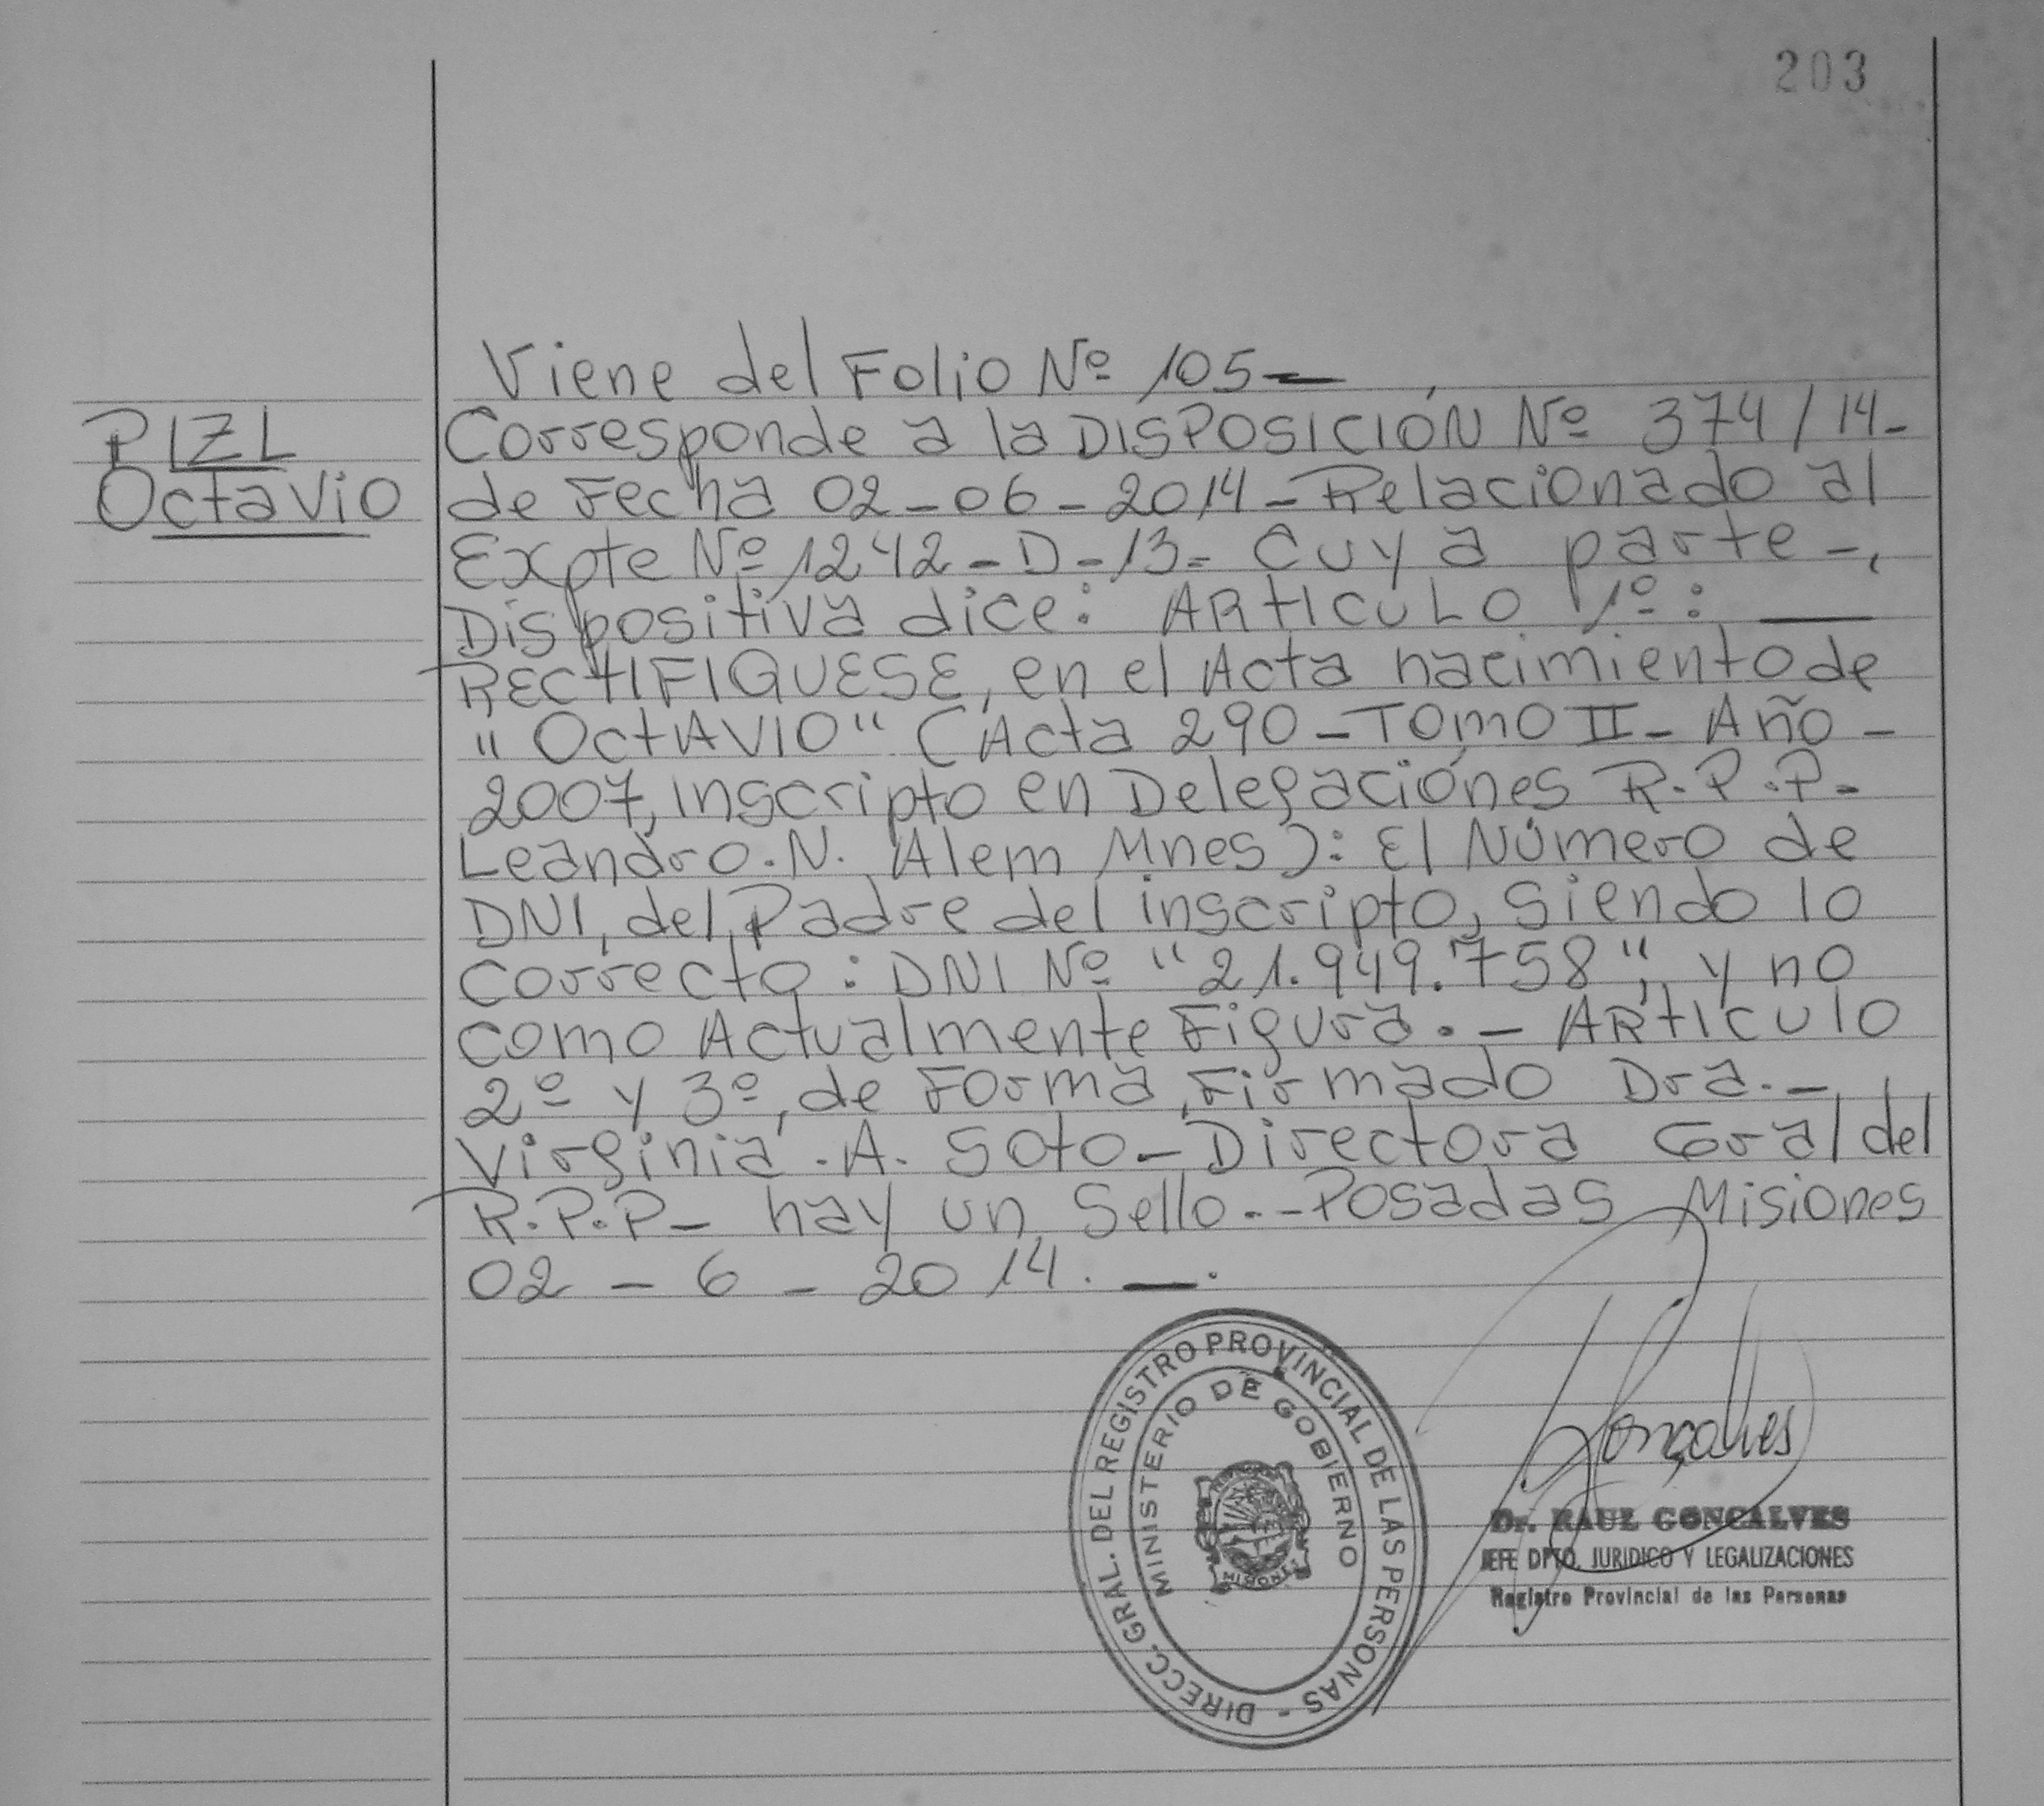 203
Viene del Folio Nº 105—
PIZL
Octavio
Corresponde a la DISPOSICIÓN Nº 374/14-
de Fecha 02-06-2014-Relacionado al
Expte Nº 1242-D-13- Cuya parte-
Dispositiva dice: ARtICULO 1º: —
RECtIFIQUESE, en el Acta nacimiento de
"OctAVIO" (Acta 290-TOMO II- Año-
2007, Inscripto en Delegaciónes R.P.P.-
Leandro.N. Alem Mnes): El Número de
DNI, del Padre del inscripto, Siendo lo
Correcto: DNI Nº "21.949.758", y no
como Actualmente Figura.- ARtICUlO
2º y 3º, de Forma, Firmado Dra.-
Virginia.A. Soto-Directora Gral del
R.P.P- hay un Sello.-Posadas Misiones
02-6-2014.—.
DIRECC. GRAL. DEL REGISTRO PROVINCIAL DE LAS PERSONAS -
MINISTERIO DE GOBIERNO
MISIONES
Gonçalves
Dr. RAUL GONCALVES
JEFE DPTO. JURIDICO Y LEGALIZACIONES
Registro Provincial de las Personas